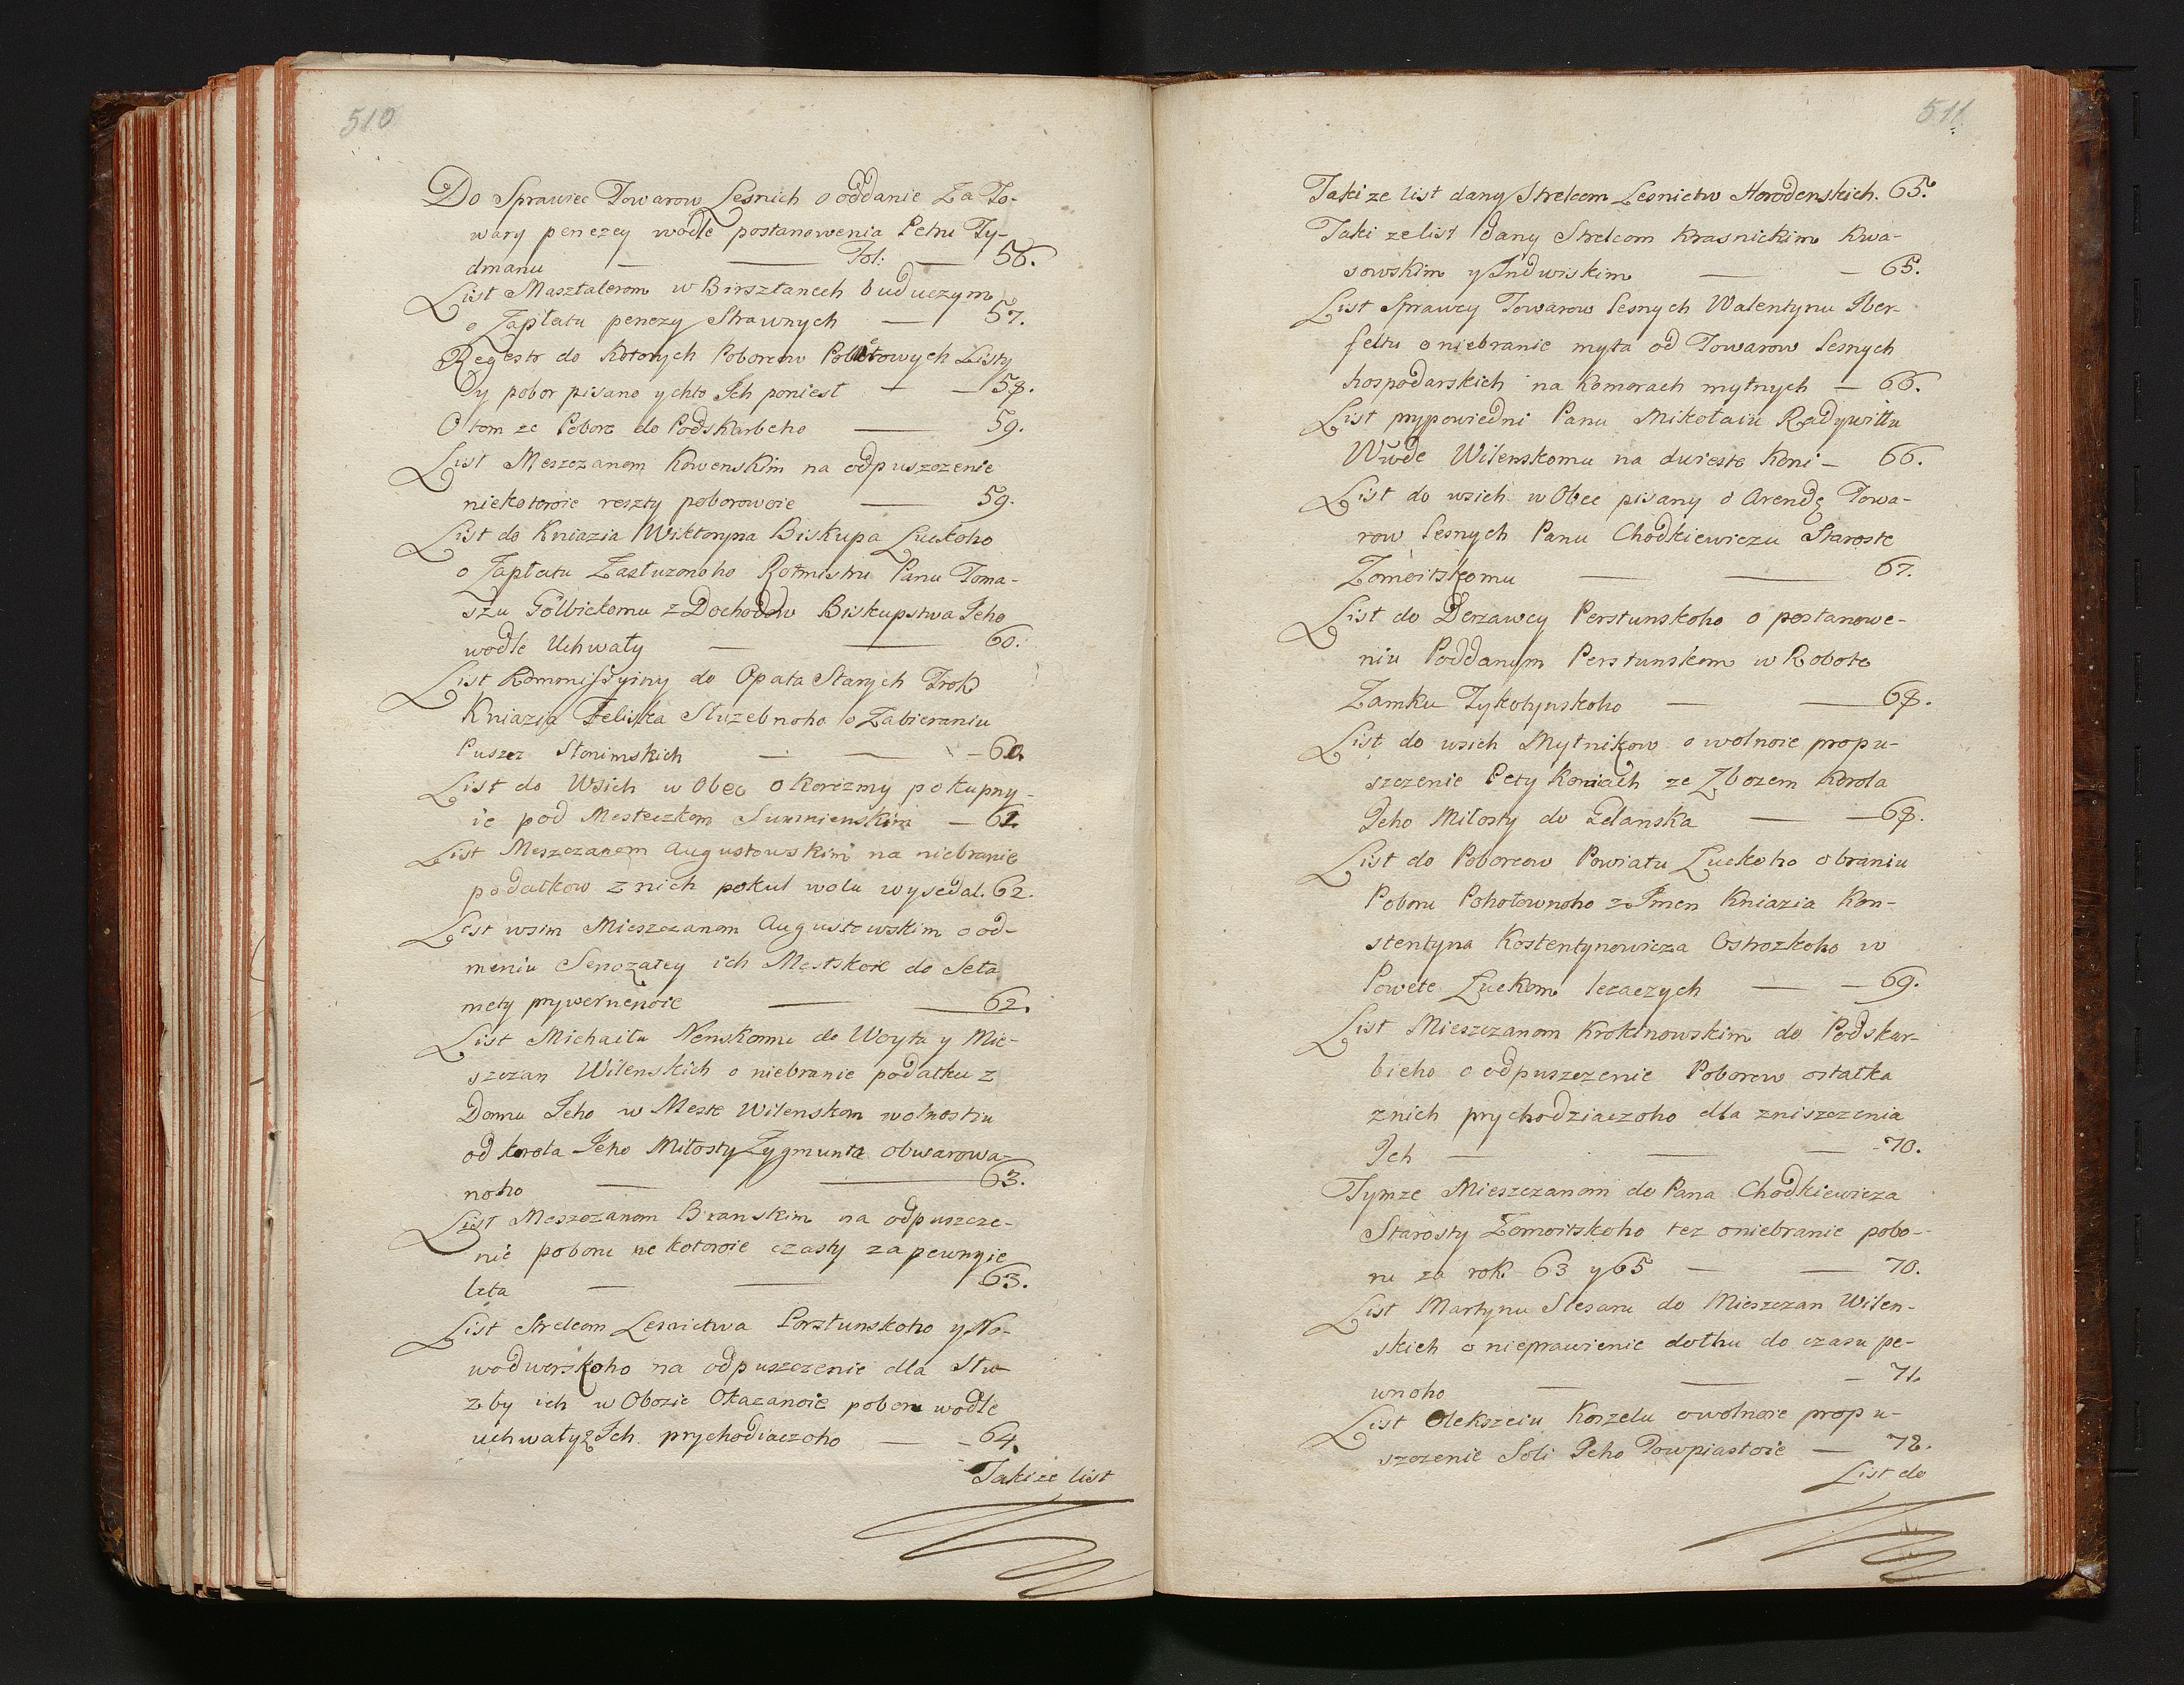 510
Do Sprawec Towarow Lesnich o oddanie Za To-
wary penezey wodle postanowenia Petru Ty-
dmanu — — Fol: — 56.
List Masztalerom w Birsztanech buduczym
o Zapłatu penezy Strawnych — 57.
Regestr do Kotorych Poborcow Poborowych Listy
y pobor pisano y chto Ich poniesł — — 58.
O tom ze Pobore do Podskarbeho — 59.
List Meszczanom Kowenskim na odpuszczenie
niekotoroie reszty poborowoie — 59.
List do Kniazia Wiktoryna Biskupa Łuckoho
o Zapłatu Zasłuzonoho Rotmistru Panu Toma-
szu Golbickomu z Dochodow Biskupstwa Jeho
wodle Uchwały — — 60.
List Kommissyiny do Opata Starych Trok
Kniazia Feliksa Słuzebnoho o Zabieraniu
Puszcz Słonimskich — — — 60.
List do Wsich w Obec o Korczmy pokupny-
ie pod Mesteczkom — 61.
List Meszczanom Augustowskim na niebranie
podatkow z nich pokul wola wysedal. 62.
List wsim Mieszczanom Augustowskim o od-
meniu Senozatey ich Mestskoie do Seła
mety prywernenoie — — 62.
List Michaiłu Nenskomu do Woyta y Mie-
szczan Wilenskich o niebranie podatku z
Domu Jeho w Meste Wilenskom wolnostiu
od Krola Jeho Miłosty Zygmunta obwarowa-
noho — — 63.
List Meszczanom Branskim na odpuszcze-
nie poboru ne kotoroie czasty za pewnyie
leta — — 63.
List Strelcom Lesnictwa Perstunskoho y No-
wodworskoho na odpuszczenie dla słu-
zby ich w Obozie Okazanoie poboru wodle
uchwały z Ich prychodiaczoho — — 64.
Takize list
511.
Taki ze list dany Strelcom Lesnictw Horodenskich. 65.
Taki ze list dany Strelcom Krasnickim Kwa-
sowskim y Indwiskim — — 65.
List Sprawcy Towarow lesnych Walentynu Iber-
feltu o niebranie myta od Towarow lesnych
hospodarskich na Komorach mytnych — 66.
List prypowiedni Panu Mikołaiu Radywiłłu
Wwde Wilenskomu na dwieste Koni — 66.
List do wsich w Obec pisany o Arendę Towa-
row lesnych Panu Chodkiewiczu Staroste
Zomoitskomu — — 67.
List do Derzawcy Perstunskoho o postanowe-
niu Poddanym Perstunskom w Robote
Zamku Tykotynskoho — — 68.
List do wsich Mytnikow o wolnoie propu-
szczenie Pety Komiach ze Zbozem Korola
Jeho Miłosty do Gdanska — — 68.
List do Poborcow Powiatu Łuckoho o braniu
Poboru Pohołownoho z Imen Kniazia Kon-
stentyna Kostentynowicza Ostrozkoho w
Powete Łuckom lezaczych — — 69.
List Mieszczanom Krokinowskim do Podskar-
bieho o odpuszczenie Poborow ostatka
z nich prychodziaczoho dla zniszczenia
Ich — — — 70.
Tymze Mieszczanom do Pana Chodkiewicza
Starosty Zomoitskoho tez o niebranie pobo-
ru za rok 63 y 65 — — 70.
List Martynu Slesaru do Mieszczan Wilen-
skich o nieprawienie dołhu do czasu pe-
wnoho — — — 71.
List Olekszeiu Korzelu o wolnoie propu-
szczenie Soli Jeho — 72.
List do